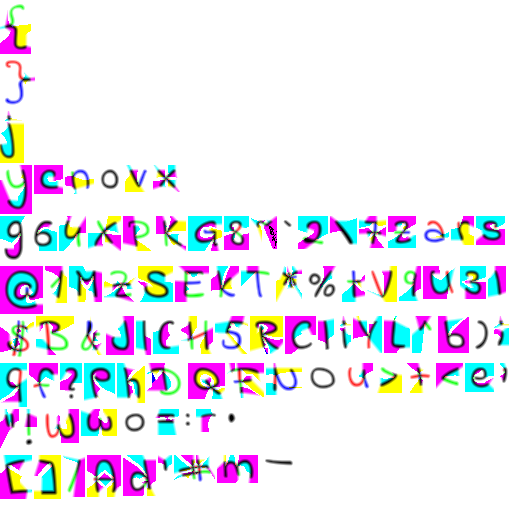 {
}
j
y c n o v x
g 6 4 X P K G 8 ` 2 \ 7 z a r s
@ 1 M z S E k T * % t V 9 U 3 l
$ B & J l ( H 5 R C I i Y L ^ b ) ;
q f ? p h D Q F N O u > + < e ,
" ! W w o = : - .
[ ] / A d ' # m —